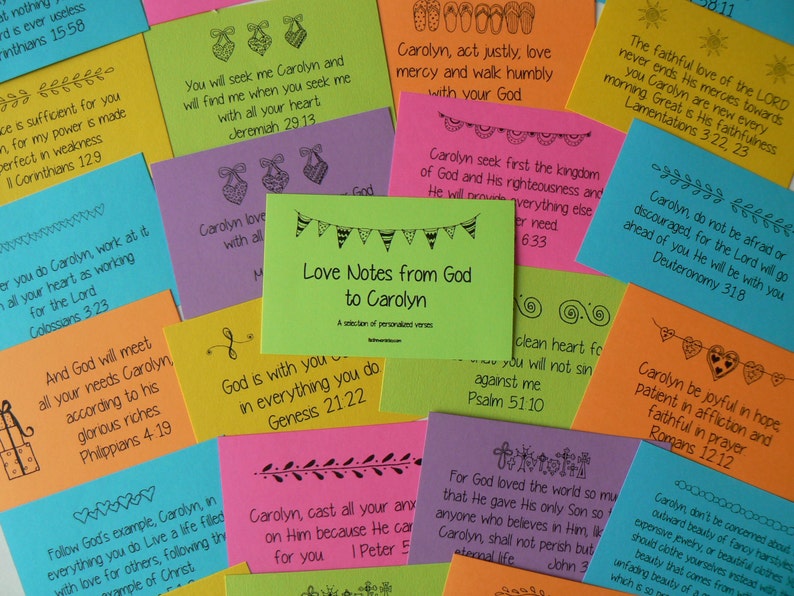 what nothing y
rd is ever useless
Corinthians 15:58
You will seek me Carolyn and
will find me when you seek me
with all your heart.
Jeremiah 29:13
Carolyn, act justly, love
mercy and walk humbly
with your God
58:11
The faithful love of the LORD
never ends. His mercies towards
you Carolyn are new every
morning. Great is His faithfulness
Lamentations 3:22, 23
ce is sufficient for you
n, for my power is made
perfect in weakness
II Corinthians 12:9
Carolyn love
God
with all
M
Carolyn seek first the kingdom
of God and His righteousness and
He will provide everything else
r need.
6:33
Carolyn, do not be afraid or
discouraged, for the Lord will go
ahead of you. He will be with you.
Deuteronomy 31:8
Love Notes from God
to Carolyn
A selection of personalized verses
er you do Carolyn, work at it
h all your heart as working
for the Lord
Colossians 3:23
And God will meet
all your needs Carolyn,
according to his
glorious riches.
Philippians 4:19
God is with you Ca
in everything you do.
Genesis 21:22
clean heart fo
that you will not sin
against me
Psalm 51:10
Carolyn be joyful in hope,
patient in affliction and
faithful in prayer
Romans 12:12
Follow God's example, Carolyn, in
everything you do. Live a life filled
with love for others, following the
example of Christ.
Carolyn, cast all your anx
on Him because He ca
for you I Peter 5
For God loved the world so mu
that He gave His only Son so t
anyone who believes in Him, lik
Carolyn, shall not perish but
eternal life John 3
Carolyn, don't be concerned about
outward beauty of fancy hairstyles
expensive jewelry, or beautiful clothes. Y
should clothe yourselves instead with the
beauty that comes from with
unfading beauty of a gen
which is so prec